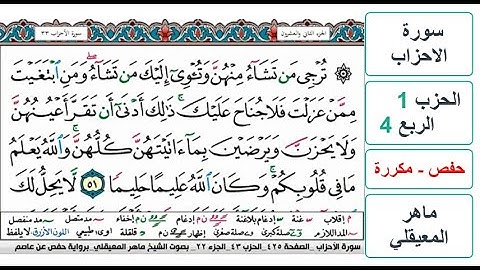 سورة الأحزاب ٣٣
الجزء الثاني والعشرون
۞ تُرْجِي مَن تَشَاءُ مِنْهُنَّ وَتُـْٔوِي إِلَيْكَ مَن تَشَاءُ وَمَنِ ابْتَغَيْتَ
مِمَّنْ عَزَلْتَ فَلَا جُنَاحَ عَلَيْكَ ذَٰلِكَ أَدْنَىٰ أَن تَقَرَّ أَعْيُنُهُنَّ
وَلَا يَحْزَنَّ وَيَرْضَيْنَ بِمَا ءَاتَيْتَهُنَّ كُلُّهُنَّ وَاللَّهُ يَعْلَمُ
مَا فِي قُلُوبِكُمْ وَكَانَ اللَّهُ عَلِيمًا حَلِيمًا ٥١ لَّا يَحِلُّ لَكَ
سورة الأحزاب - الصفحة ٤٢٥ - الحزب ٤٣ - الجزء ٢٢ - بصوت الشيخ ماهر المعيقلي - برواية حفص عن عاصم
سورة
الاحزاب
الحزب 1
الربع 4
حفص - مكررة
ماهر
المعيقلي